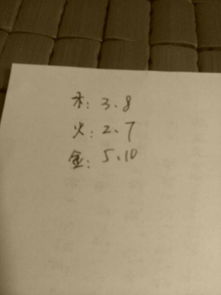 木：3、8
火：2、7
金：5、10